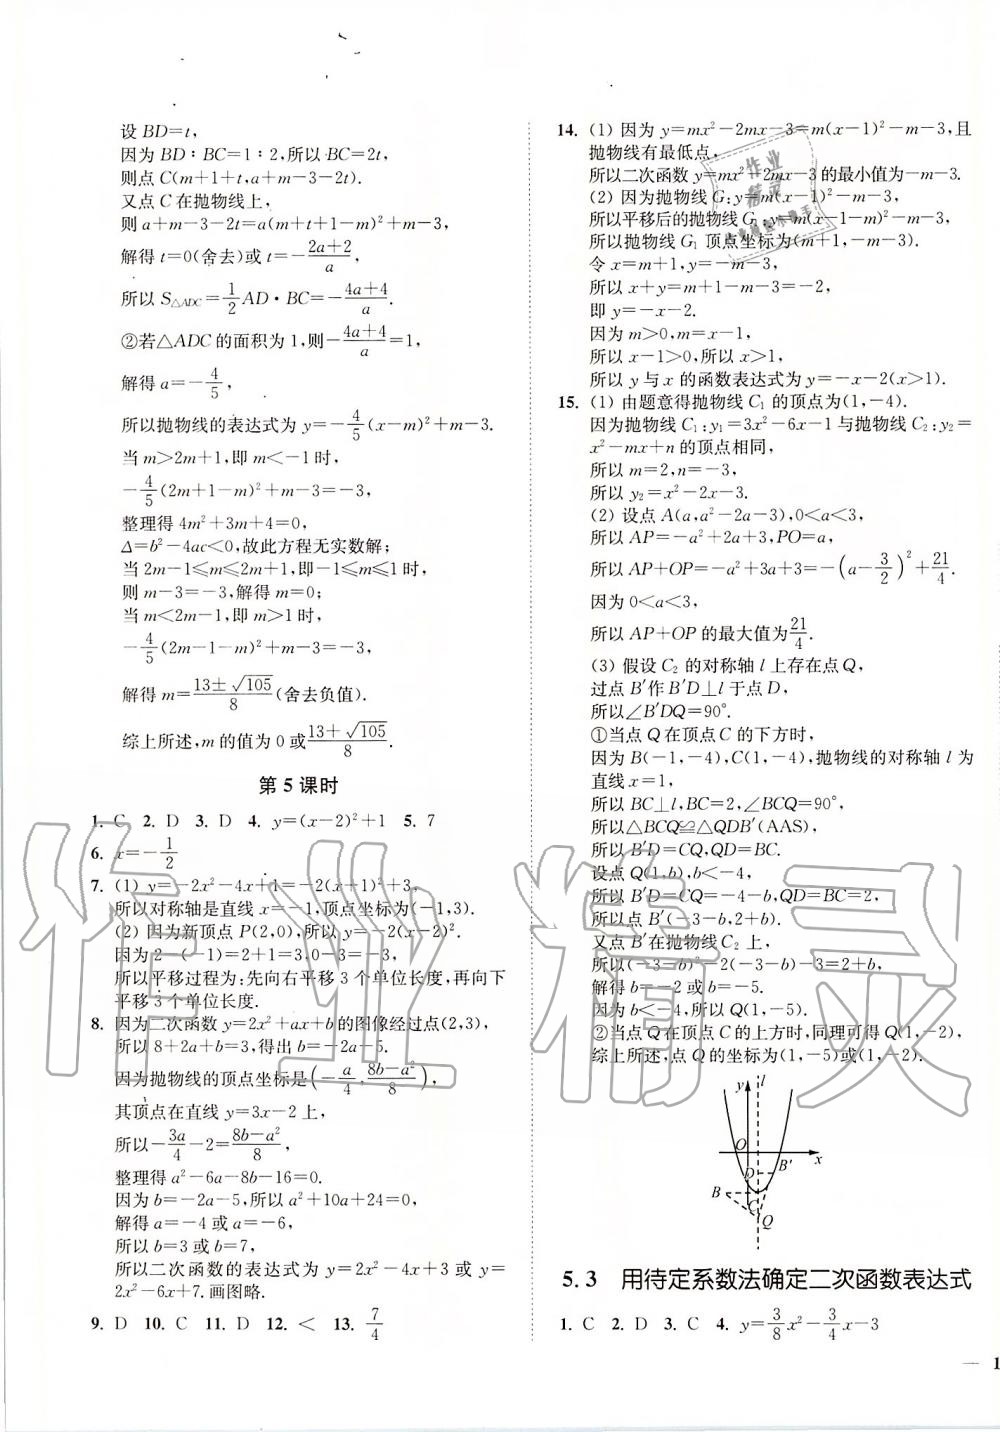 设 BD=t,
因为 BD∶BC=1∶2,所以 BC=2t,
则点 C(m+1+t,a+m-3-2t).
又点 C 在抛物线上,
则 a+m-3-2t=a(m+t+1-m)²+m-3,
解得 t=0(舍去)或 t=-(2a+2)/a,
所以 S△ADC=1/2 AD·BC=-(4a+4)/a.
②若△ADC 的面积为 1,则-(4a+4)/a=1,
解得 a=-4/5,
所以抛物线的表达式为 y=-4/5(x-m)²+m-3.
当 m>2m+1,即 m<-1 时,
-4/5(2m+1-m)²+m-3=-3,
整理得 4m²+3m+4=0,
Δ=b²-4ac<0,故此方程无实数解;
当 2m-1≤m≤2m+1,即-1≤m≤1 时,
则 m-3=-3,解得 m=0;
当 m<2m-1,即 m>1 时,
-4/5(2m-1-m)²+m-3=-3,
解得 m=(13±√105)/8(舍去负值).
综上所述,m 的值为 0 或(13+√105)/8.
第 5 课时
1. C 2. D 3. D 4. y=(x-2)²+1 5. 7
6. x=-1/2
7. (1) y=-2x²-4x+1=-2(x+1)²+3,
所以对称轴是直线 x=-1,顶点坐标为(-1,3).
(2) 因为新顶点 P(2,0),所以 y=-2(x-2)².
因为 2-(-1)=2+1=3,0-3=-3,
所以平移过程为:先向右平移 3 个单位长度,再向下
平移 3 个单位长度.
8. 因为二次函数 y=2x²+ax+b 的图像经过点(2,3),
所以 8+2a+b=3,得出 b=-2a-5.
因为抛物线的顶点坐标是(-a/4,(8b-a²)/8),
其顶点在直线 y=3x-2 上,
所以-3a/4-2=(8b-a²)/8,
整理得 a²-6a-8b-16=0.
因为 b=-2a-5,所以 a²+10a+24=0,
解得 a=-4 或 a=-6,
所以 b=3 或 b=7,
所以二次函数的表达式为 y=2x²-4x+3 或 y=
2x²-6x+7.画图略.
9. D 10. C 11. D 12. < 13. 7/4
14. (1) 因为 y=mx²-2mx-3=m(x-1)²-m-3,且
抛物线有最低点,
所以二次函数 y=mx²-2mx-3 的最小值为-m-3.
(2) 因为抛物线 G:y=m(x-1)²-m-3,
所以平移后的抛物线 G₁:y=m(x-1-m)²-m-3,
所以抛物线 G₁ 顶点坐标为(m+1,-m-3).
令 x=m+1,y=-m-3,
所以 x+y=m+1-m-3=-2,
即 y=-x-2.
因为 m>0,m=x-1,
所以 x-1>0,所以 x>1,
所以 y 与 x 的函数表达式为 y=-x-2(x>1).
15. (1) 由题意得抛物线 C₁ 的顶点为(1,-4).
因为抛物线 C₁:y₁=3x²-6x-1 与抛物线 C₂:y₂=
x²-mx+n 的顶点相同,
所以 m=2,n=-3,
所以 y₂=x²-2x-3.
(2) 设点 A(a,a²-2a-3),0<a<3,
所以 AP=-a²+2a+3,PO=a,
所以 AP+OP=-a²+3a+3=-(a-3/2)²+21/4.
因为 0<a<3,
所以 AP+OP 的最大值为21/4.
(3) 假设 C₂ 的对称轴 l 上存在点 Q,
过点 B′作 B′D⊥l 于点 D,
所以∠B′DQ=90°.
①当点 Q 在顶点 C 的下方时,
因为 B(-1,-4),C(1,-4),抛物线的对称轴 l 为
直线 x=1,
所以 BC⊥l,BC=2,∠BCQ=90°,
所以△BCQ≌△QDB′(AAS),
所以 B′D=CQ,QD=BC.
设点 Q(1,b),b<-4,
所以 B′D=CQ=-4-b,QD=BC=2,
所以点 B′(-3-b,2+b).
又点 B′在抛物线 C₂ 上,
所以(-3-b)²-2(-3-b)-3=2+b,
解得 b=-2 或 b=-5.
因为 b<-4,所以 Q(1,-5).
②当点 Q 在顶点 C 的上方时,同理可得 Q(1,-2),
综上所述,点 Q 的坐标为(1,-5)或(1,-2).
y
l
O
D
B′
x
B
C
Q
5.3 用待定系数法确定二次函数表达式
1. C 2. D 3. C 4. y=3/8x²-3/4x-3
— 1
作业精灵
作业
精灵